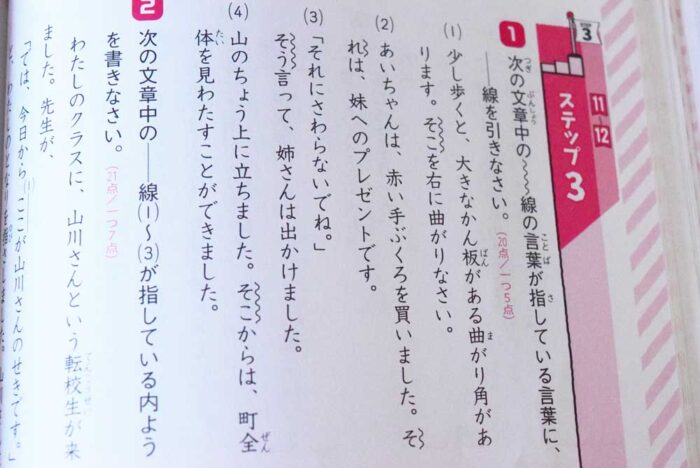 STEP 3
11
12
ステップ3
1 次の文章中の〰〰線の言葉が指している言葉に、
――線を引きなさい。(20点/一つ5点)
(1) 少し歩くと、大きなかん板がある曲がり角があ
ります。そこを右に曲がりなさい。
(2) あいちゃんは、赤い手ぶくろを買いました。そ
れは、妹へのプレゼントです。
(3) 「それにさわらないでね。」
そう言って、姉さんは出かけました。
(4) 山のちょう上に立ちました。そこからは、町全
体を見わたすことができました。
2 次の文章中の――線(1)〜(3)が指している内よう
を書きなさい。(21点/一つ7点)
わたしのクラスに、山川さんという転校生が来
ました。先生が、
「では、今日から(1)ここが山川さんのせきです。」